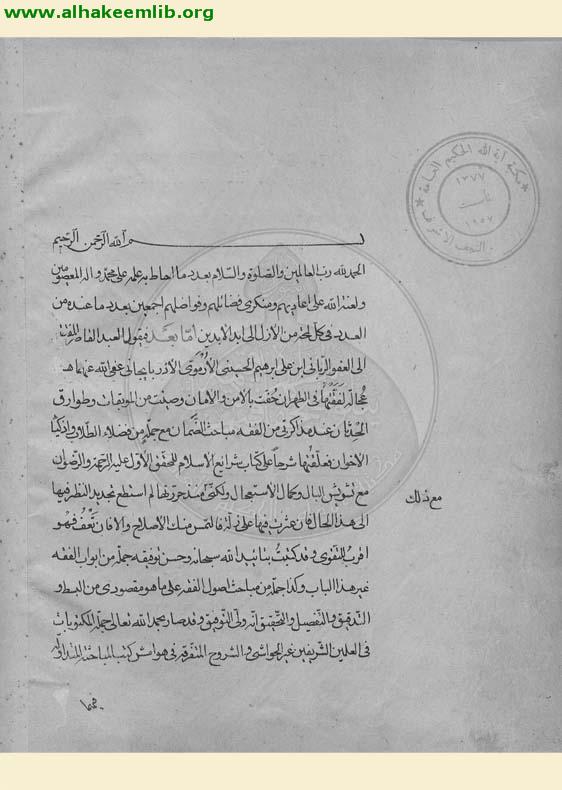 www.alhakeemlib.org
مكتبة آية الله الحكيم العامة
١٣٧٧
تأسست
١٩٥٧
النجف الاشرف
بسم الله الرحمن الرحيم
الحمد لله رب العالمين والصلوة والسلام بعدد ما احاط به علمه على محمد واله المعصومين
ولعنة الله على اعاديهم ومنكرى فضائلهم وفواضلهم اجمعين بعدد ما عنده من
العدد فى كل لمحة من الازل الى ابد الابدين امّا بعد فيقول العبد القاصر المفتقر
الى العفو الربانى ابن على ابراهيم الحسينى الأرموى الأذربايجانى عفى الله عنهما هـ
عجالة لفقتها فى الطهران حُفّت بالأمن والامان وصينت من الموبقات وطوارق
الحدثان عند مذاكرتى من الفقه مباحث الضمان مع جملة من فضلاء الطلاب واذكياء
الاخوان فعلقتها شرحا على كتاب شرايع الاسلام للمحقق الاول عليه الرحمة والرضوان
مع تشويش البال وكمال الاستعجال ولكنى منذ حررتها لم استطع تجديد النظر فيها
مع ذلك
الى هذا الحال فان عثرت فيها على زلة فالتمس منك الاصلاح والا فان تعف فهو
اقرب للتقوى وقد كتبت بتائيد الله سبحانه وحسن توفيقه جملة من ابواب الفقه
غير هذا الباب وكذا جملة من مباحث اصول الفقه على ما هو مقصودى من البسط و
التدقيق والتفصيل والتحقيق انه ولى التوفيق وقد صار بحمد الله تعالى جملة المكتوبات
فى العلمين الشريفين غير الحواشى والشروح المتفرقة فى هوامش كتب المباحثة المتداولة
فيها